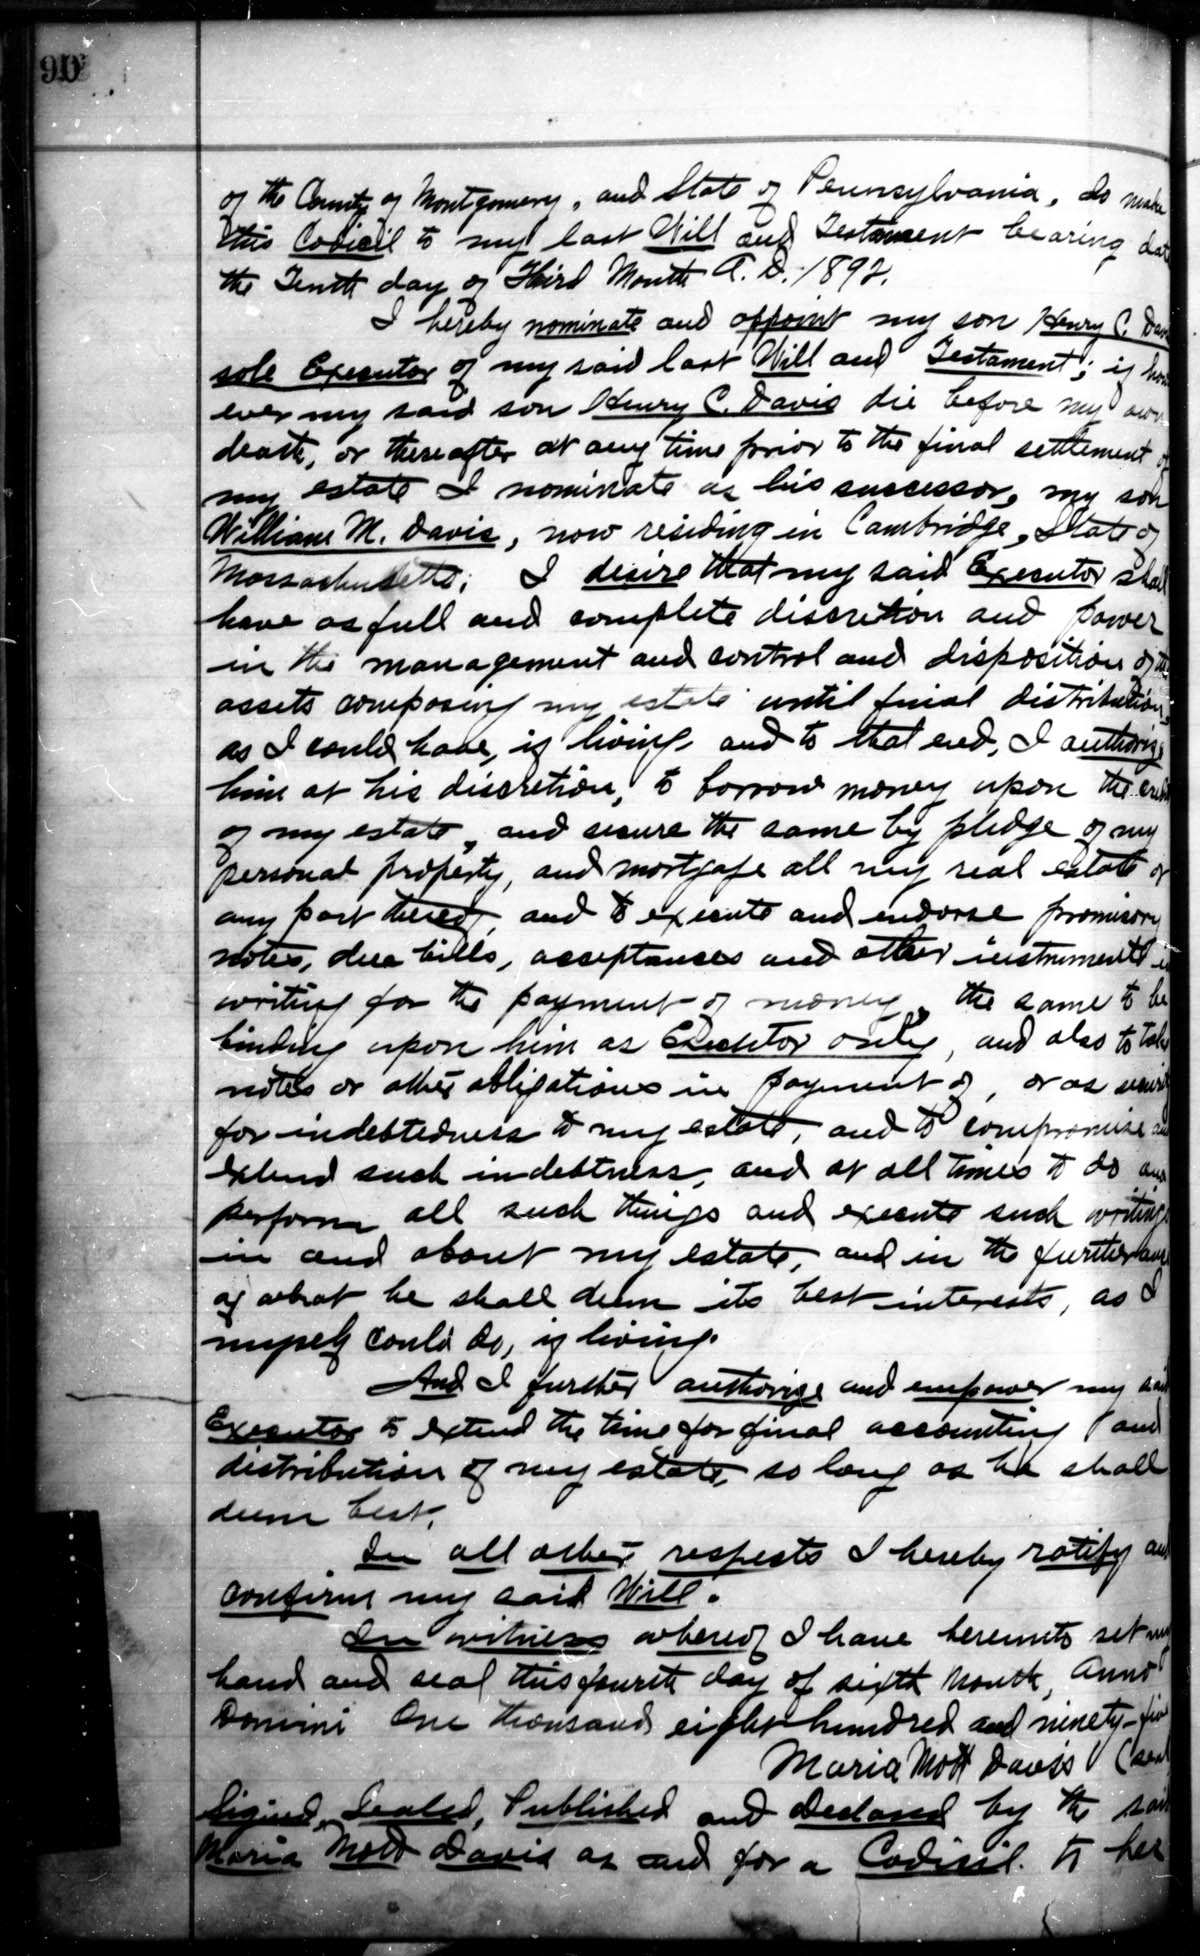 90
of the County of Montgomery, and State of Pennsylvania, do make
this Codicil to my last Will and Testament bearing dat
the Tenth day of Third Month A. D. 1892.
I hereby nominate and appoint my son Henry C. Dav
sole Executor of my said last Will and Testament; if how
ever my said son Henry C. Davis die before my own
death, or thereafter at any time prior to the final settlement of
my estate I nominate as his successor, my son
William M. Davis, now residing in Cambridge, State of
Massachusetts; I desire that my said Executor shall
have as full and complete discretion and power
in the management and control and disposition of the
assets composing my estate until final distribution,
as I could have, if living, and to that end, I authorize
him at his discretion, to borrow money upon the credit
of my estate, and secure the same by pledge of my
personal property, and mortgage all my real estate or
any part thereof, and to execute and endorse promisory
notes, due bills, acceptances and other instruments in
writing for the payment of money, the same to be
binding upon him as Executor only, and also to take
notes or other obligations in payment of, or as securit
for indebtedness to my estate, and to compromise and
extend such indebtness, and at all times to do and
perform all such things and execute such writings
in and about my estate, and in the furtherance
of what he shall deem its best interests, as I
myself could do, if living.
And I further authorize and empower my said
Executor to extend the time for final accounting and
distribution of my estate, so long as he shall
deem best.
In all other respects I hereby ratify and
confirm my said Will.
In witness whereof I have hereunto set my
hand and seal this fourth day of sixth Month, Anno
Domini One thousand eight hundred and ninety-five
Maria Mott Davis (seal
Signed, Sealed, Published and declared by the said
Maria Mott Davis as and for a Codicil to her